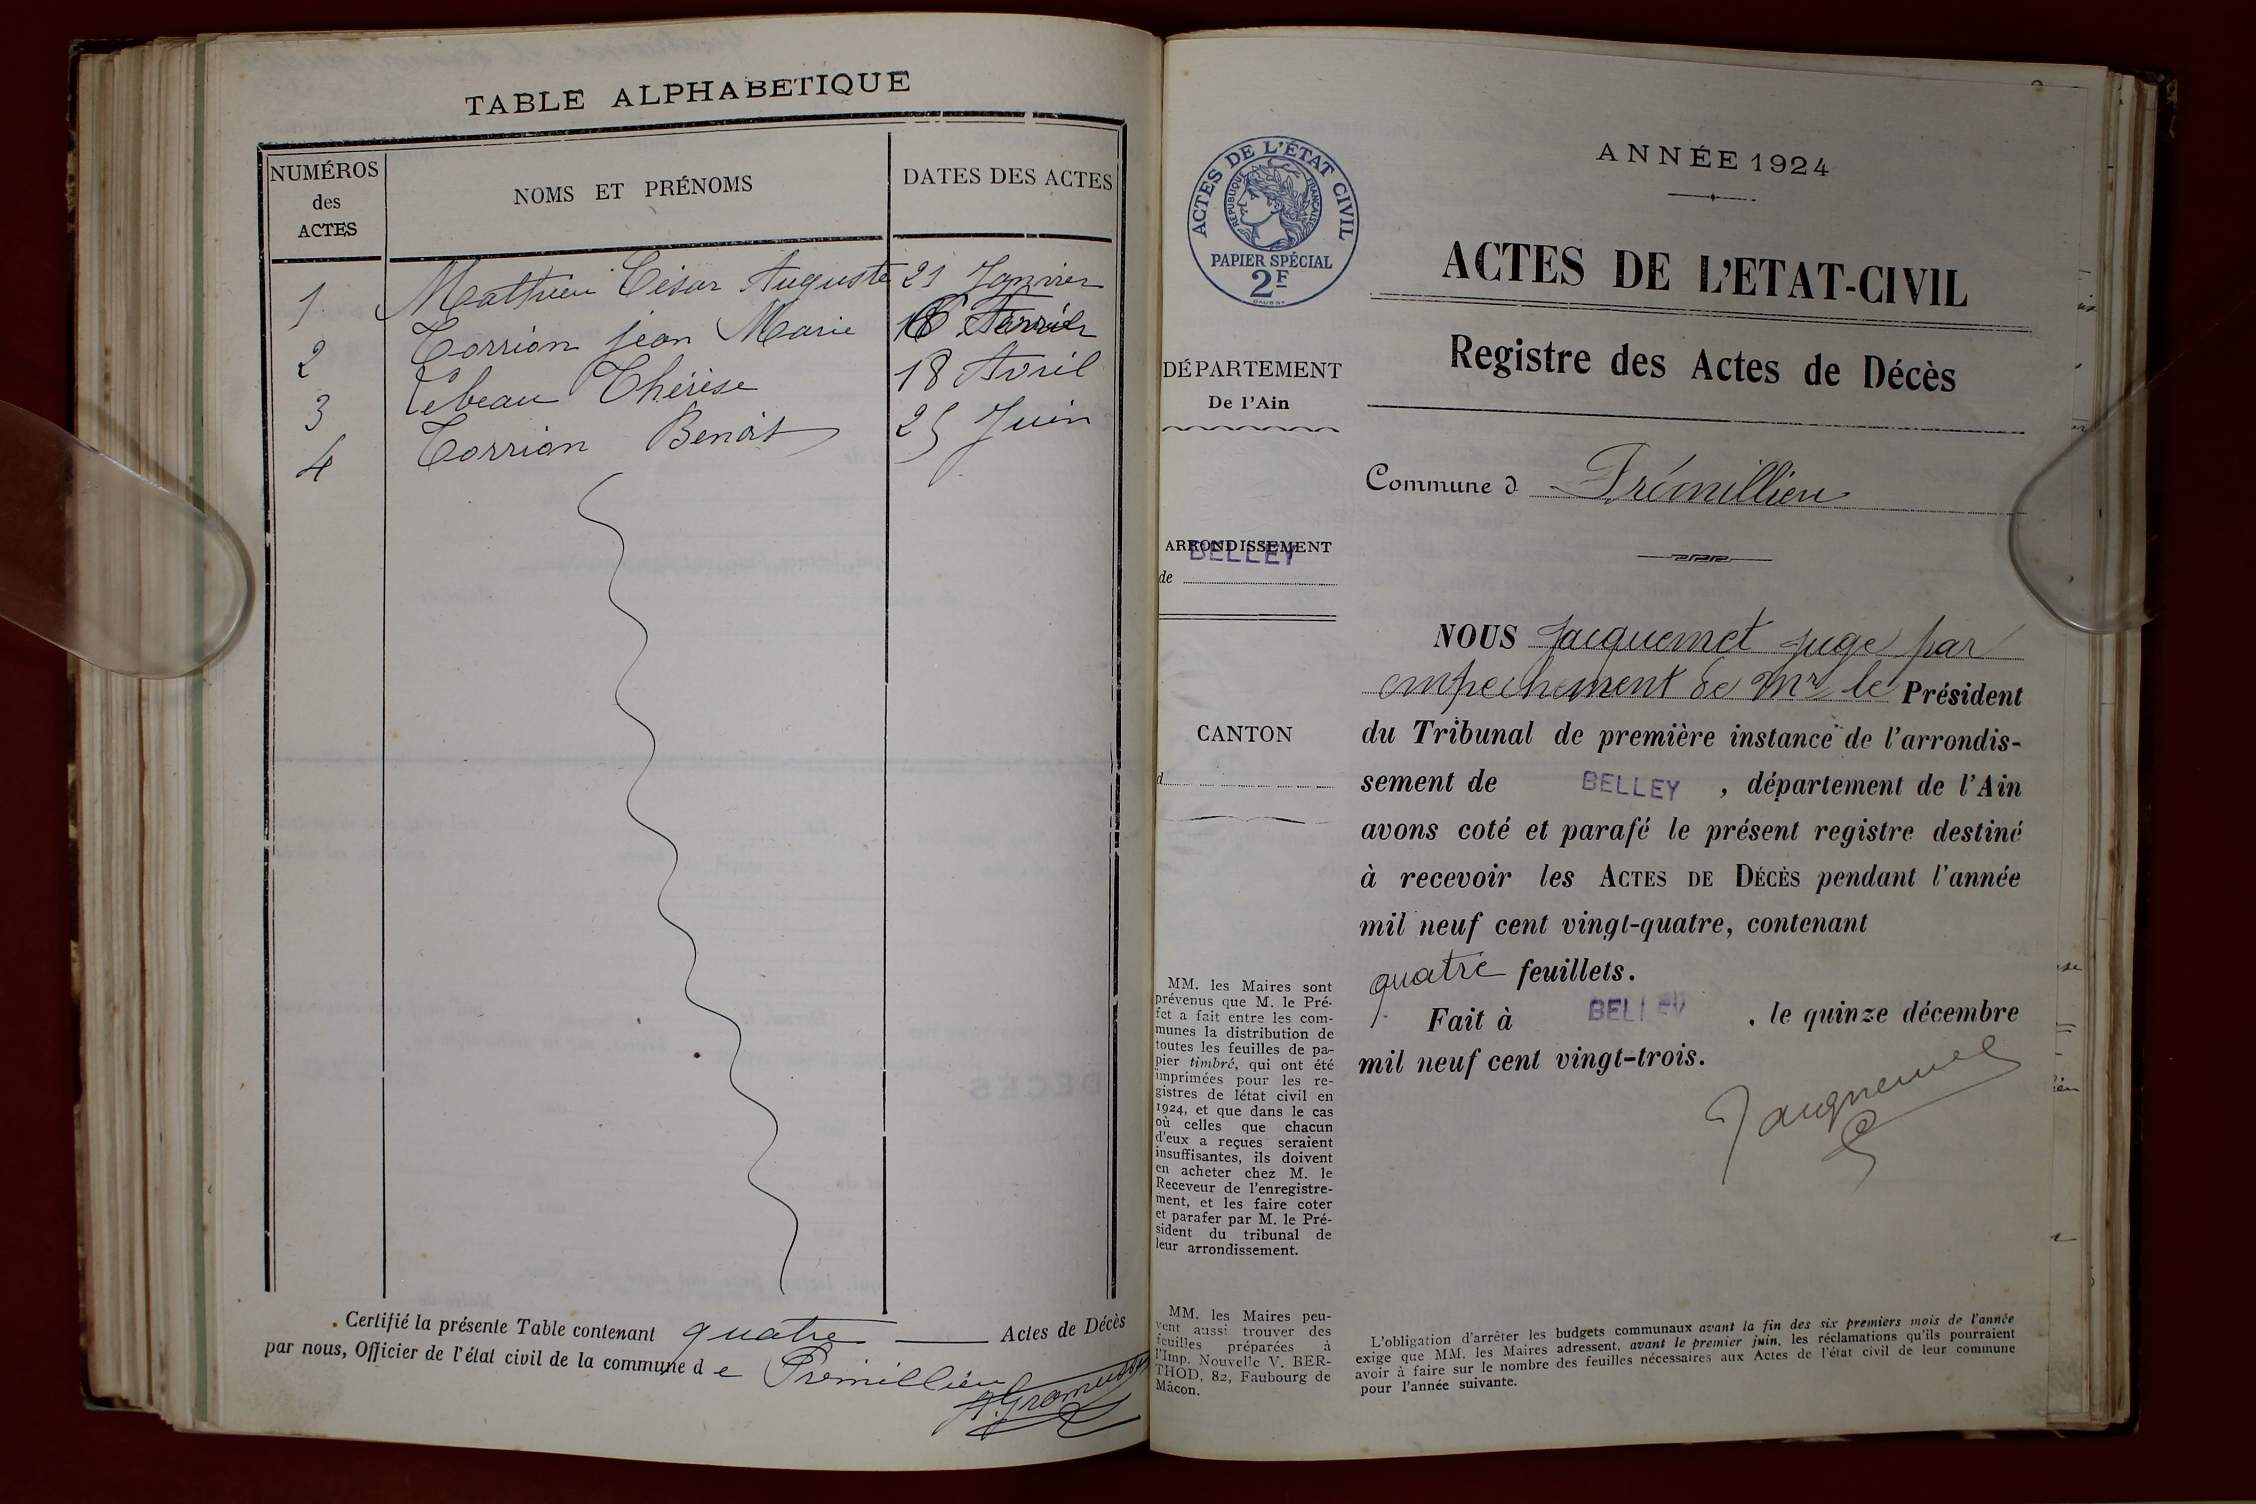 TABLE ALPHABETIQUE
NUMÉROS
des
ACTES
NOMS ET PRÉNOMS
DATES DES ACTES
1 Mathieu César Auguste 21 Janvier
2 Corrion jean Marie
3 Lebeau Thérèse 18 Avril
4 Corrion Benoit 25 Juin
Certifié la présente Table contenant quatre Actes de Décès
par nous, Officier de l'état civil de la commune de Prémillieu
ACTES DE L'ÉTAT CIVIL
RÉPUBLIQUE FRANÇAISE
PAPIER SPÉCIAL
2F
DÉPARTEMENT
De l'Ain
ARRONDISSEMENT
BELLEY
de
CANTON
d
MM. les Maires sont
prévenus que M. le Pré-
fet a fait entre les com-
munes la distribution de
toutes les feuilles de pa-
pier timbré, qui ont été
imprimées pour les re-
gistres de létat civil en
1924, et que dans le cas
où celles que chacun
d'eux a reçues seraient
insuffisantes, ils doivent
en acheter chez M. le
Receveur de l'enregistre-
ment, et les faire coter
et parafer par M. le Pré-
sident du tribunal de
leur arrondissement.
MM. les Maires peu-
vent aussi trouver des
feuilles préparées à
l'Imp. Nouvelle V. BER-
THOD, 82, Faubourg de
Mâcon.
ANNÉE 1924
ACTES DE L'ETAT-CIVIL
Registre des Actes de Décès
Commune d Prémillieu
NOUS Jacquemet juge par
empechement de Mr le Président
du Tribunal de première instance de l'arrondis-
sement de BELLEY, département de l'Ain
avons coté et parafé le présent registre destiné
à recevoir les ACTES DE DÉCÈS pendant l'année
mil neuf cent vingt-quatre, contenant
quatre feuillets.
Fait à BELLEY, le quinze décembre
mil neuf cent vingt-trois.
Jacquemet
L'obligation d'arrêter les budgets communaux avant la fin des six premiers mois de l'année
exige que MM. les Maires adressent, avant le premier juin, les réclamations qu'ils pourraient
avoir à faire sur le nombre des feuilles nécessaires aux Actes de l'état civil de leur commune
pour l'année suivante.